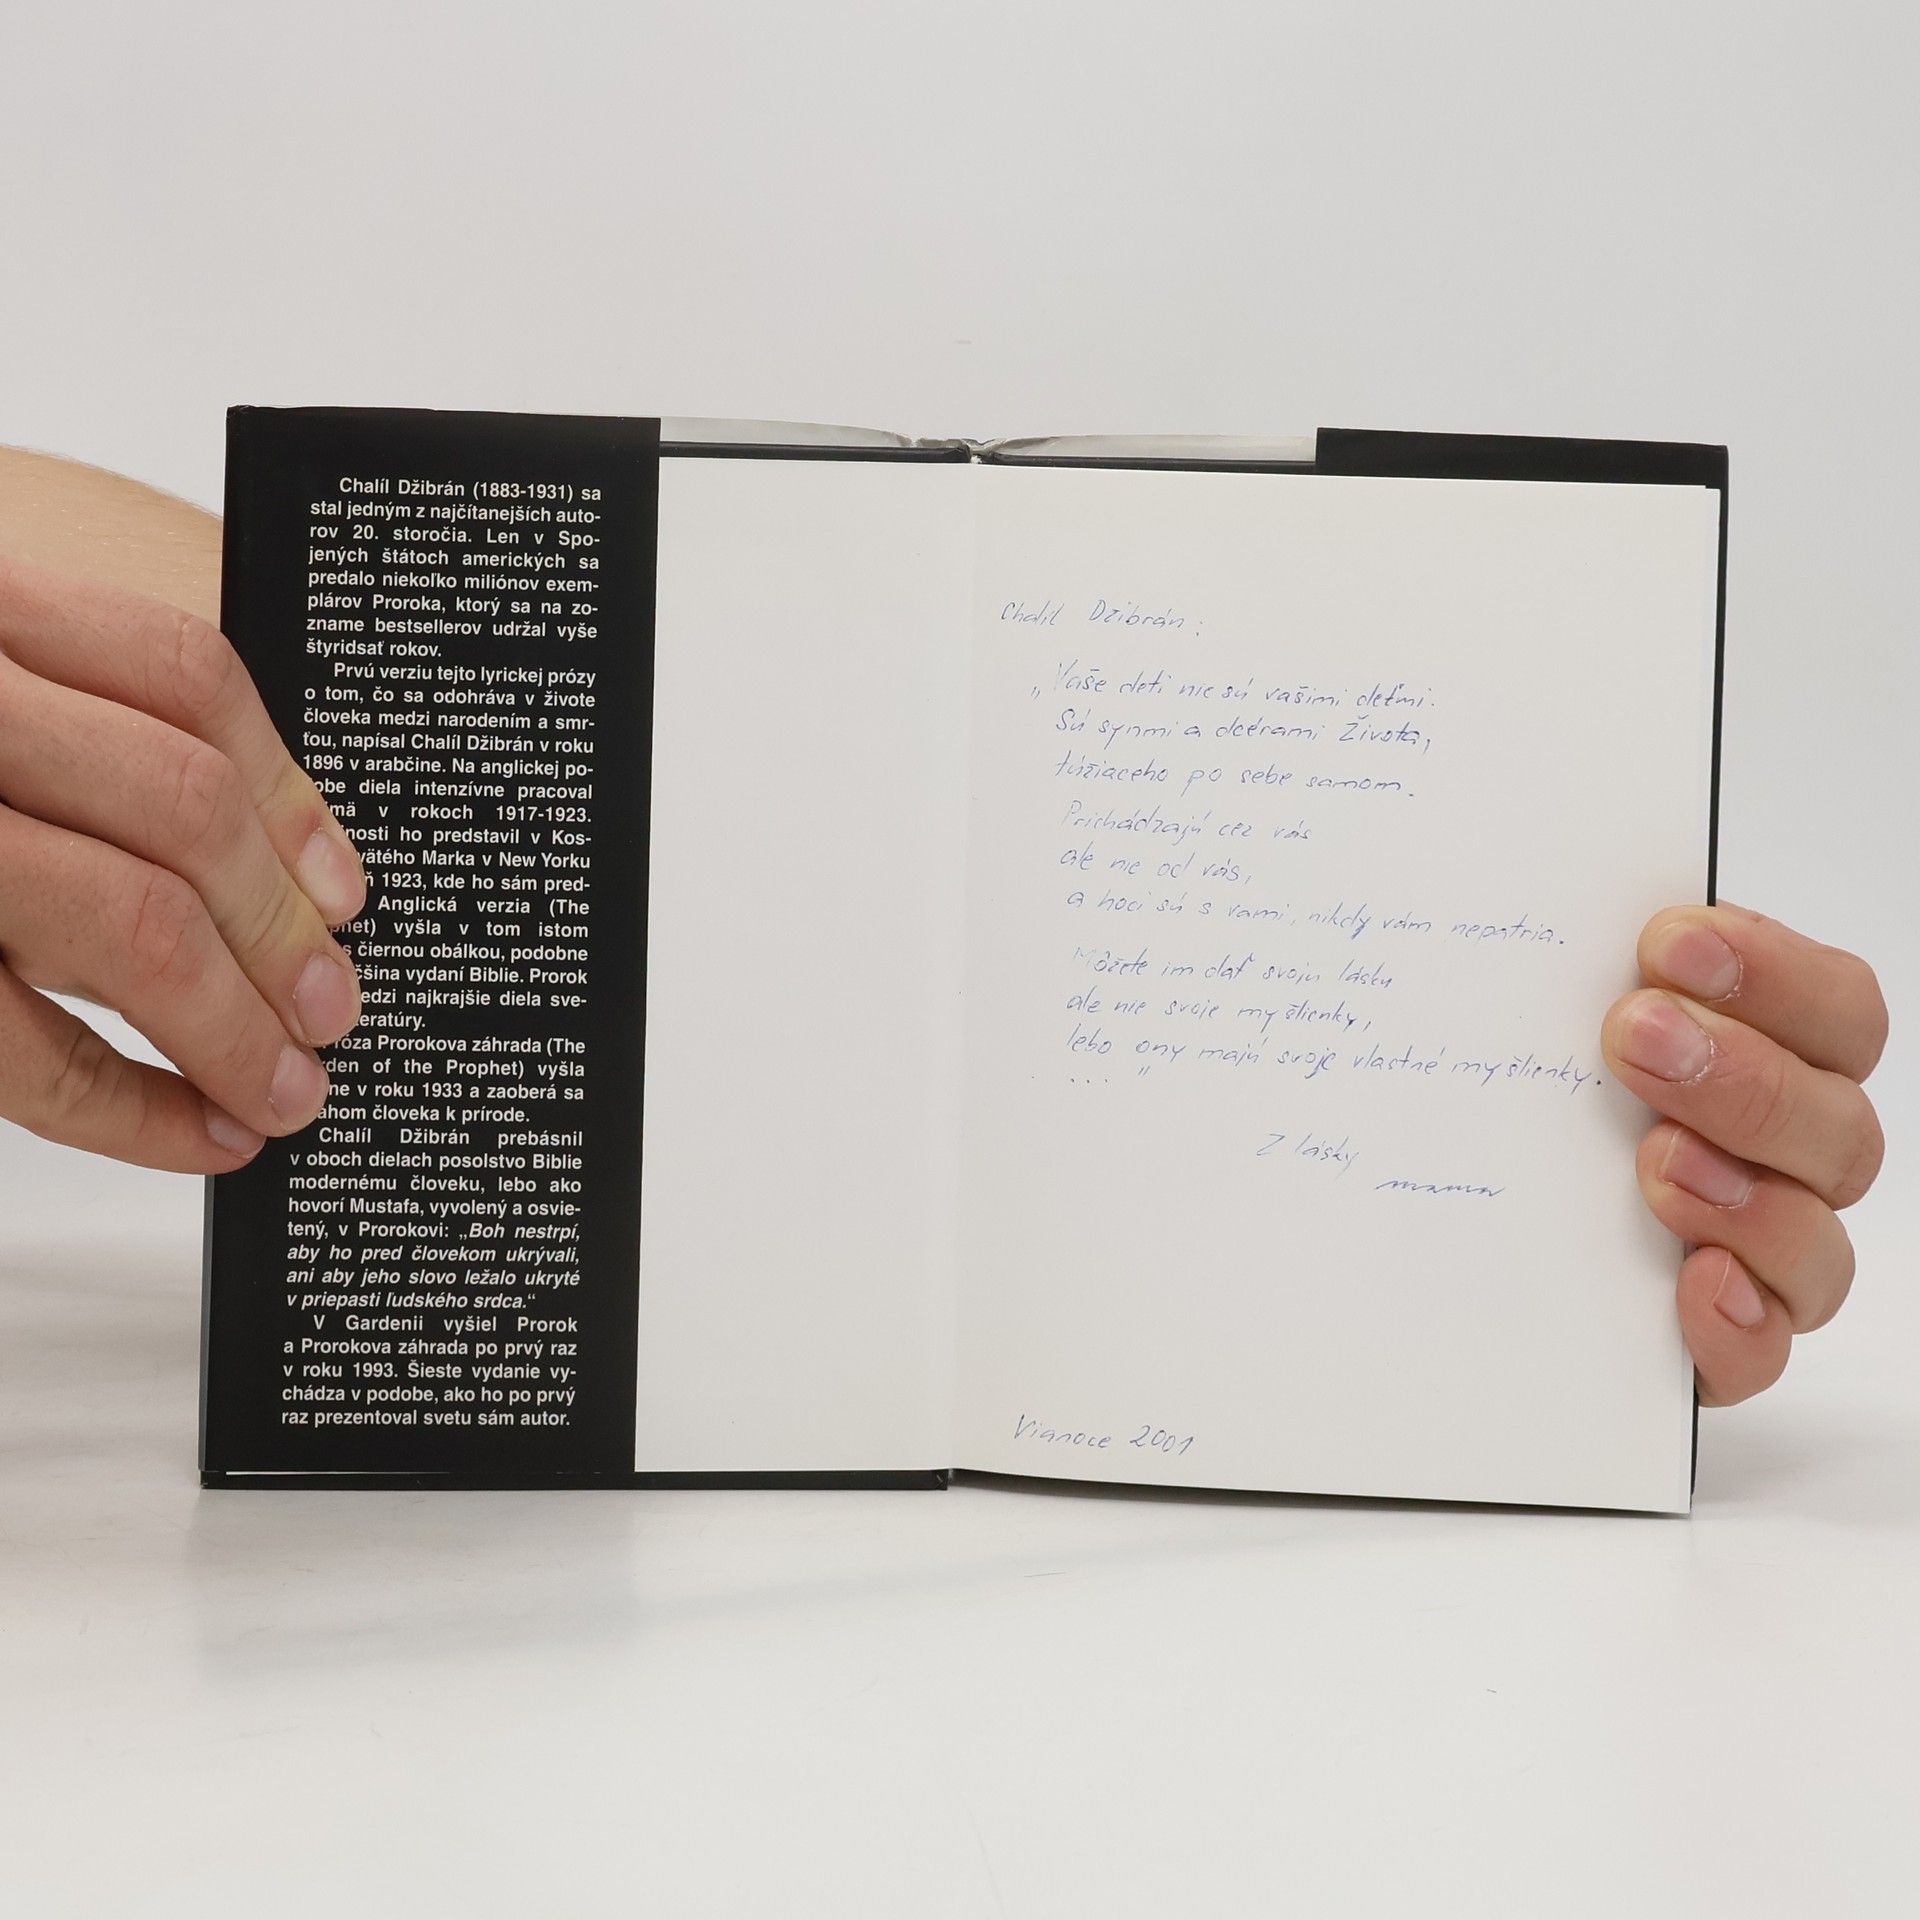 Chalíl Džibrán (1883-1931) sa
stal jedným z najčítanejších auto-
rov 20. storočia. Len v Spo-
jených štátoch amerických sa
predalo niekoľko miliónov exem-
plárov Proroka, ktorý sa na zo-
zname bestsellerov udržal vyše
štyridsať rokov.
Prvú verziu tejto lyrickej prózy
o tom, čo sa odohráva v živote
človeka medzi narodením a smr-
ťou, napísal Chalíl Džibrán v roku
1896 v arabčine. Na anglickej po-
diela intenzívne pracoval
v rokoch 1917-1923.
ho predstavil v Kos-
Marka v New Yorku
1923, kde ho sám pred-
Anglická verzia (The
vyšla v tom istom
s čiernou obálkou, podobne
vydaní Biblie. Prorok
najkrajšie diela sve-
Prorokova záhrada (The
of the Prophet) vyšla
v roku 1933 a zaoberá sa
človeka k prírode.
Chalíl Džibrán prebásnil
v oboch dielach posolstvo Biblie
modernému človeku, lebo ako
hovorí Mustafa, vyvolený a osvie-
tený, v Prorokovi: „Boh nestrpí,
aby ho pred človekom ukrývali,
ani aby jeho slovo ležalo ukryté
v priepasti ľudského srdca.“
V Gardenii vyšiel Prorok
a Prorokova záhrada po prvý raz
v roku 1993. Šieste vydanie vy-
chádza v podobe, ako ho po prvý
raz prezentoval svetu sám autor.
Chalíl Džibrán:
„Vaše deti nie sú vašimi deťmi.
Sú synmi a dcérami Života,
túžiaceho po sebe samom.
Prichádzajú cez vás
ale nie od vás,
a hoci sú s vami, nikdy vám nepatria.
Môžete im dať svoju lásku
ale nie svoje myšlienky,
lebo ony majú svoje vlastné myšlienky.
.... "
Z lásky
mama
Vianoce 2001